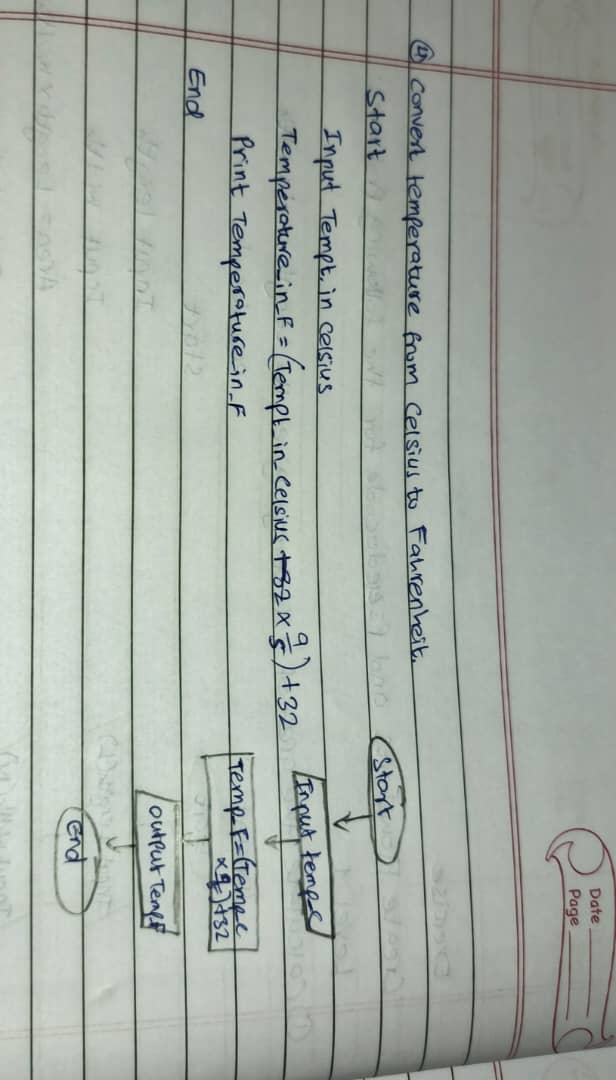 Date
Page
④ Convert temperature from Celsius to Fahrenheit.
Start
Input Tempt. in celsius
Temperature_in_F = (Tempt_in_Celsius +32 × 9/5) + 32
Print Temperature_in_F
End
Start
Input temp_c
Temp_F = (Temp_c
× 9/5) + 32
output Temp_F
end